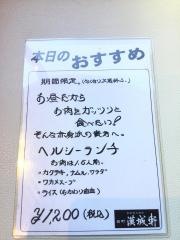 本日のおすすめ
期間限定。
お昼だから
お肉とガッツリと
食べたい!
そんなお身体の貴方へ。
ヘルシーランチ
お肉は1.5人前。
・カクテキ、ナムル、サラダ
・ワカメスープ
・ライス(おかわり自由)
¥1,200(税込)